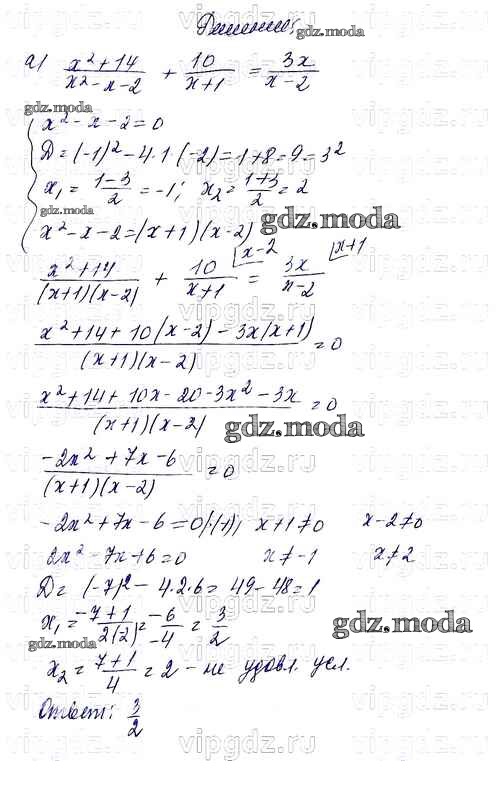 Решение:
gdz.moda
а) (x²+14)/(x²-x-2) + 10/(x+1) = 3x/(x-2)
gdz.moda
x²-x-2=0
D=(-1)²-4·1·(-2)=1+8=9=3²
x₁=(1-3)/2=-1; x₂=(1+3)/2=2
gdz.moda
x²-x-2=(x+1)(x-2)
gdz.moda
(x²+14)/((x+1)(x-2)) + 10/(x+1) |x-2 = 3x/(x-2) |x+1
(x²+14+10(x-2)-3x(x+1))/((x+1)(x-2))=0
(x²+14+10x-20-3x²-3x)/((x+1)(x-2))=0
gdz.moda
(-2x²+7x-6)/((x+1)(x-2))=0
-2x²+7x-6=0/·(-1); x+1≠0 x-2≠0
2x²-7x+6=0 x≠-1 x≠2
D=(-7)²-4·2·6=49-48=1
x₁=(-7+1)/(2(2))=-6/-4=3/2
gdz.moda
gdz.moda
x₂=(7+1)/4=2-не удовл. усл.
Ответ: 3/2
vipgdz.ru